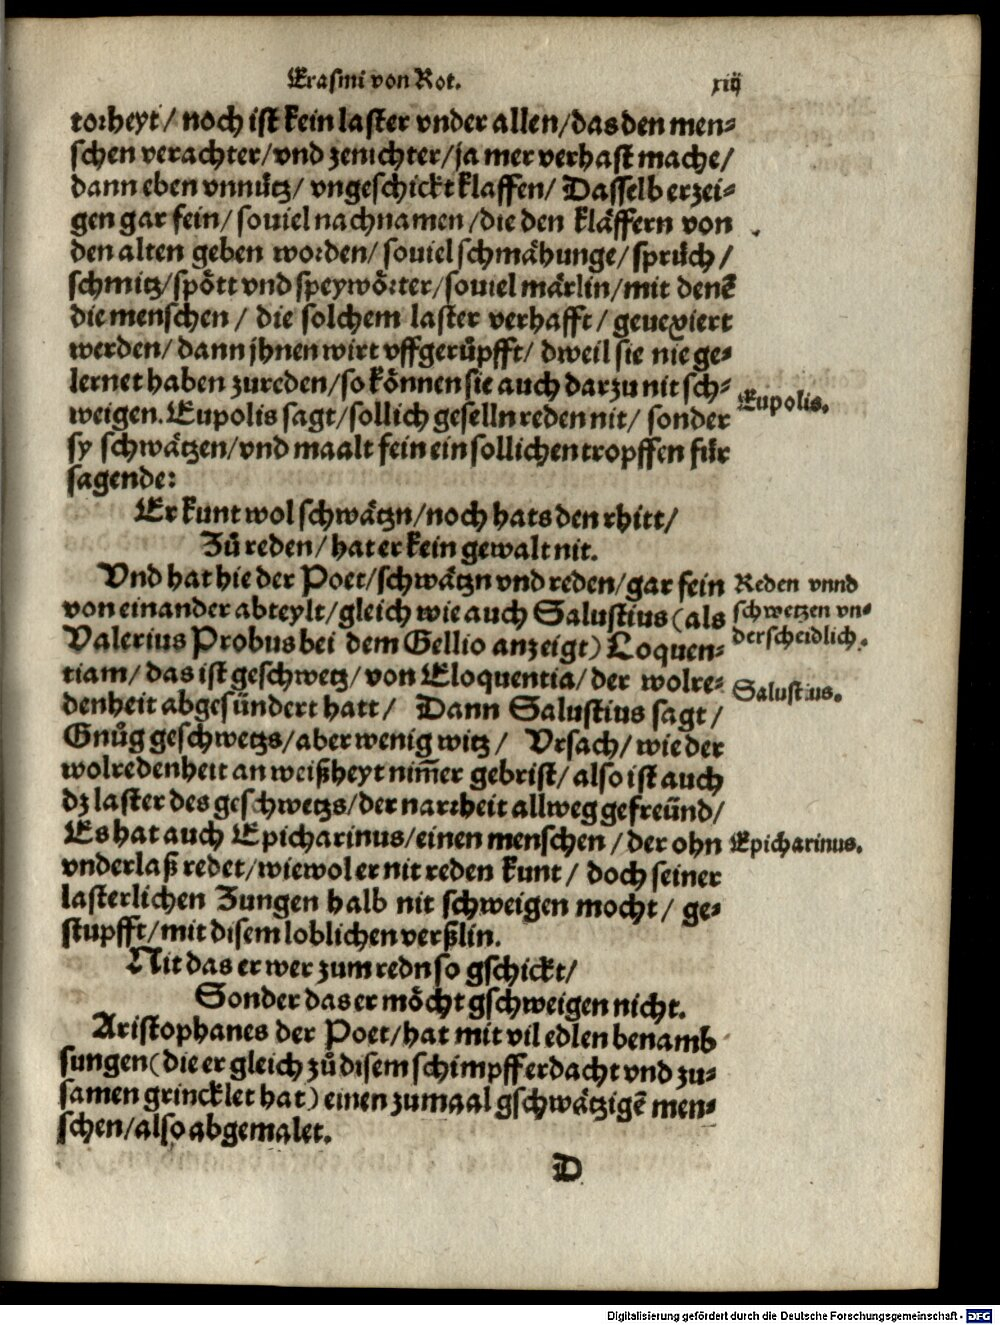 Erasmi von Rot.
xiij
torheyt / noch ist kein laster vnder allen / das den men⸗
schen verachter / vnd zenichter / ja mer verhast mache /
dann eben vnnütz / vngeschickt klaffen / Dasselb erzei⸗
gen gar fein / souiel nachnamen / die den kläffern von
den alten geben worden / souiel schmähunge / sprüch /
schmitz / spött vnd speywörter / souiel märlin / mit denē
die menschen / die solchem laster verhafft / geuexiert
werden / dann jhnen wirt vffgerüpfft / dweil sie nie ge⸗
lernet haben zureden / so können sie auch darzu nit sch⸗
weigen. Eupolis sagt / sollich geselln reden nit / sonder
Eupolis.
sy schwätzen / vnd maalt fein ein sollichen tropffen für
sagende:
Er kunt wol schwätzn / noch hats den rhitt /
Zů reden / hat er kein gewalt nit.
Vnd hat hie der Poet / schwätzn vnd reden / gar fein
Reden vnnd
von einander abteylt / gleich wie auch Salustius (als
schwetzen vn⸗
Valerius Probus bei dem Gellio anzeigt) Loquen⸗
derscheidlich.
tiam / das ist geschwetz / von Eloquentia / der wolre⸗
Salustius.
denheit abgesündert hatt / Dann Salustius sagt /
Gnůg geschwetzs / aber wenig witz / Vrsach / wie der
wolredenheit an weißheyt nim̄er gebrist / also ist auch
dz laster des geschwetzs / der narrheit allweg gefreünd /
Es hat auch Epicharinus / einen menschen / der ohn
Epicharinus.
vnderlaß redet / wiewol er nit reden kunt / doch seiner
lasterlichen Zungen halb nit schweigen mocht / ge⸗
stupfft / mit disem loblichen verßlin.
Nit das er wer zum redn so gschickt /
Sonder das er möcht gschweigen nicht.
Aristophanes der Poet / hat mit vil edlen benamb
sungen (die er gleich zů disem schimpff erdacht vnd zu⸗
samen grincklet hat) einen zumaal gschwätzigē men⸗
schen / also abgemalet.
D
Digitalisierung gefördert durch die Deutsche Forschungsgemeinschaft - DFG